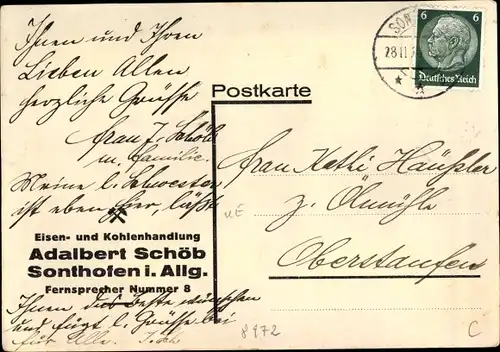 Ihnen und Ihren
Lieben Allen
herzliche Grüsse
Frau J. Schöb
u. Familie.
Meine l. Schwester
ist eben hier, lässt
Eisen- und Kohlenhandlung
Adalbert Schöb
Sonthofen i. Allg.
Fernsprecher Nummer 8
Ihnen das Beste wünschen
und fügt l. Grüsse bei
für Alle.
Postkarte
SON
28.11
6 6
Deutsches Reich
Frau Kathi Häußler
z. Ölmühle
Oberstaufen
8972
C